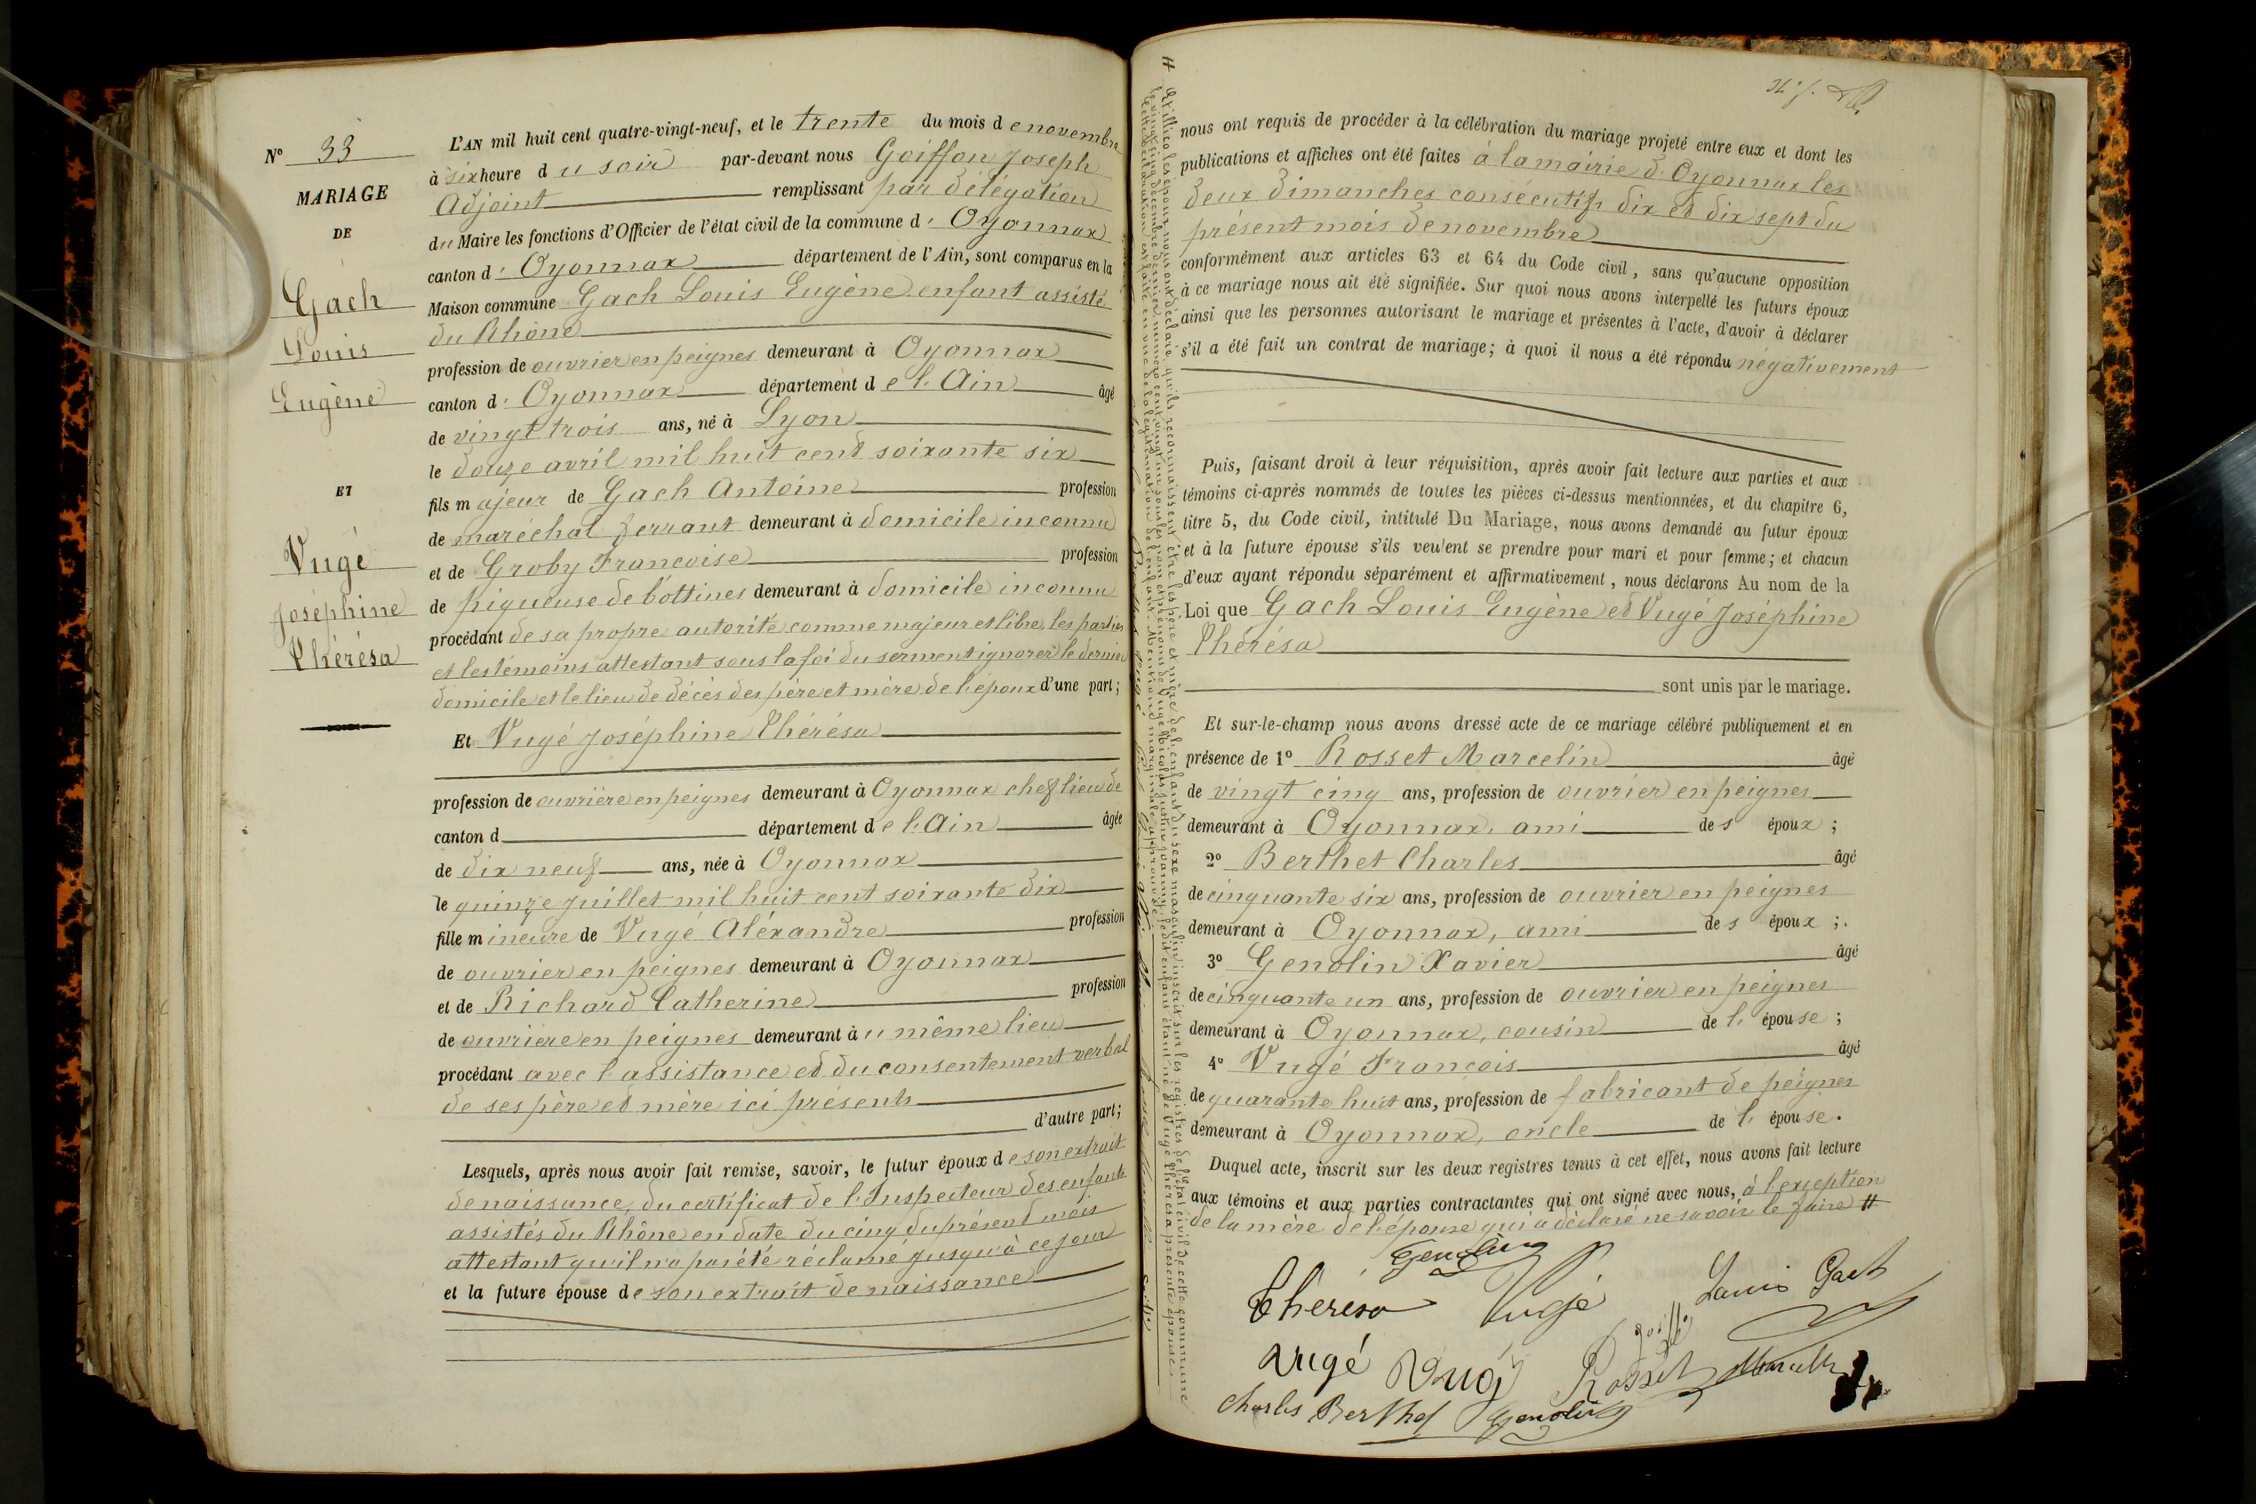 N° 33
MARIAGE
DE
Gach
Louis
Eugène
ET
Vugé
Joséphine
Thérésa
L'AN mil huit cent quatre-vingt-neuf, et le trente du mois de novembre
à six heure du soir par-devant nous Goiffon Joseph
Adjoint remplissant par délégation
du Maire les fonctions d'Officier de l'état civil de la commune d'Oyonnax
canton d'Oyonnax département de l'Ain, sont comparus en la
Maison commune Gach Louis Eugène enfant assisté
du Rhône
profession de ouvrier en peignes demeurant à Oyonnax
canton d'Oyonnax département de l'Ain âgé
de vingt trois ans, né à Lyon
le douze avril mil huit cent soixante six
fils majeur de Gach Antoine profession
de maréchal ferrant demeurant à domicile inconnu
et de Groby Francoise profession
de piqueuse de bottines demeurant à domicile inconnu
procédant de sa propre autorité comme majeur et libre, les parties
et les témoins attestant sous la foi du serment ignorer le dernier
domicile et le lieu de décès des père et mère de l'époux d'une part;
Et Vugé Joséphine Thérésa
profession de ouvrière en peignes demeurant à Oyonnax chef lieu de
canton d département de l'Ain âgée
de dix neuf ans, née à Oyonnax
le quinze juillet mil huit cent soixante dix
fille mineure de Vugé Aléxandre profession
de ouvrier en peignes demeurant à Oyonnax
et de Richard Catherine profession
de ouvrière en peignes demeurant àu même lieu
procédant avec l'assistance et du consentement verbal
de ses père et mère ici présents
d'autre part;
Lesquels, après nous avoir fait remise, savoir, le futur époux de son extrait
de naissance, du certificat de l'Inspecteur des enfants
assistés du Rhône en date du cinq du présent mois
attestant qu'il n'a pas été réclamé jusqu'à ce jour
et la future épouse de son extrait de naissance
nous ont requis de procéder à la célébration du mariage projeté entre eux et dont les
publications et affiches ont été faites à la mairie d'Oyonnax les
deux dimanches consécutifs dix et dix sept du
présent mois de novembre
conformément aux articles 63 et 64 du Code civil, sans qu'aucune opposition
à ce mariage nous ait été signifiée. Sur quoi nous avons interpellé les futurs époux
ainsi que les personnes autorisant le mariage et présentes à l'acte, d'avoir à déclarer
s'il a été fait un contrat de mariage; à quoi il nous a été répondu négativement
Puis, faisant droit à leur réquisition, après avoir fait lecture aux parties et aux
témoins ci-après nommés de toutes les pièces ci-dessus mentionnées, et du chapitre 6,
titre 5, du Code civil, intitulé Du Mariage, nous avons demandé au futur époux
et à la future épouse s'ils veulent se prendre pour mari et pour femme; et chacun
d'eux ayant répondu séparément et affirmativement, nous déclarons Au nom de la
Loi que Gach Louis Eugène et Vugé Joséphine
Thérésa
sont unis par le mariage.
Et sur-le-champ nous avons dressé acte de ce mariage célébré publiquement et en
présence de 1° Rosset Marcelin âgé
de vingt cinq ans, profession de ouvrier en peignes
demeurant à Oyonnax, ami des époux;
2° Berthet Charles âgé
de cinquante six ans, profession de ouvrier en peignes
demeurant à Oyonnax, ami des époux;
3° Genolin Xavier âgé
de cinquante un ans, profession de ouvrier en peignes
demeurant à Oyonnax, cousin de l'épouse;
4° Vugé Francois âgé
de quarante huit ans, profession de fabricant de peignes
demeurant à Oyonnax, oncle de l'épouse.
Duquel acte, inscrit sur les deux registres tenus à cet effet, nous avons fait lecture
aux témoins et aux parties contractantes qui ont signé avec nous, à l'exception
de la mère de l'épouse qui a déclaré ne savoir le faire #
Thérésa Vugé Louis Gach
Vugé Vugé Rosset Marcelin
Charles Berthet Genolin